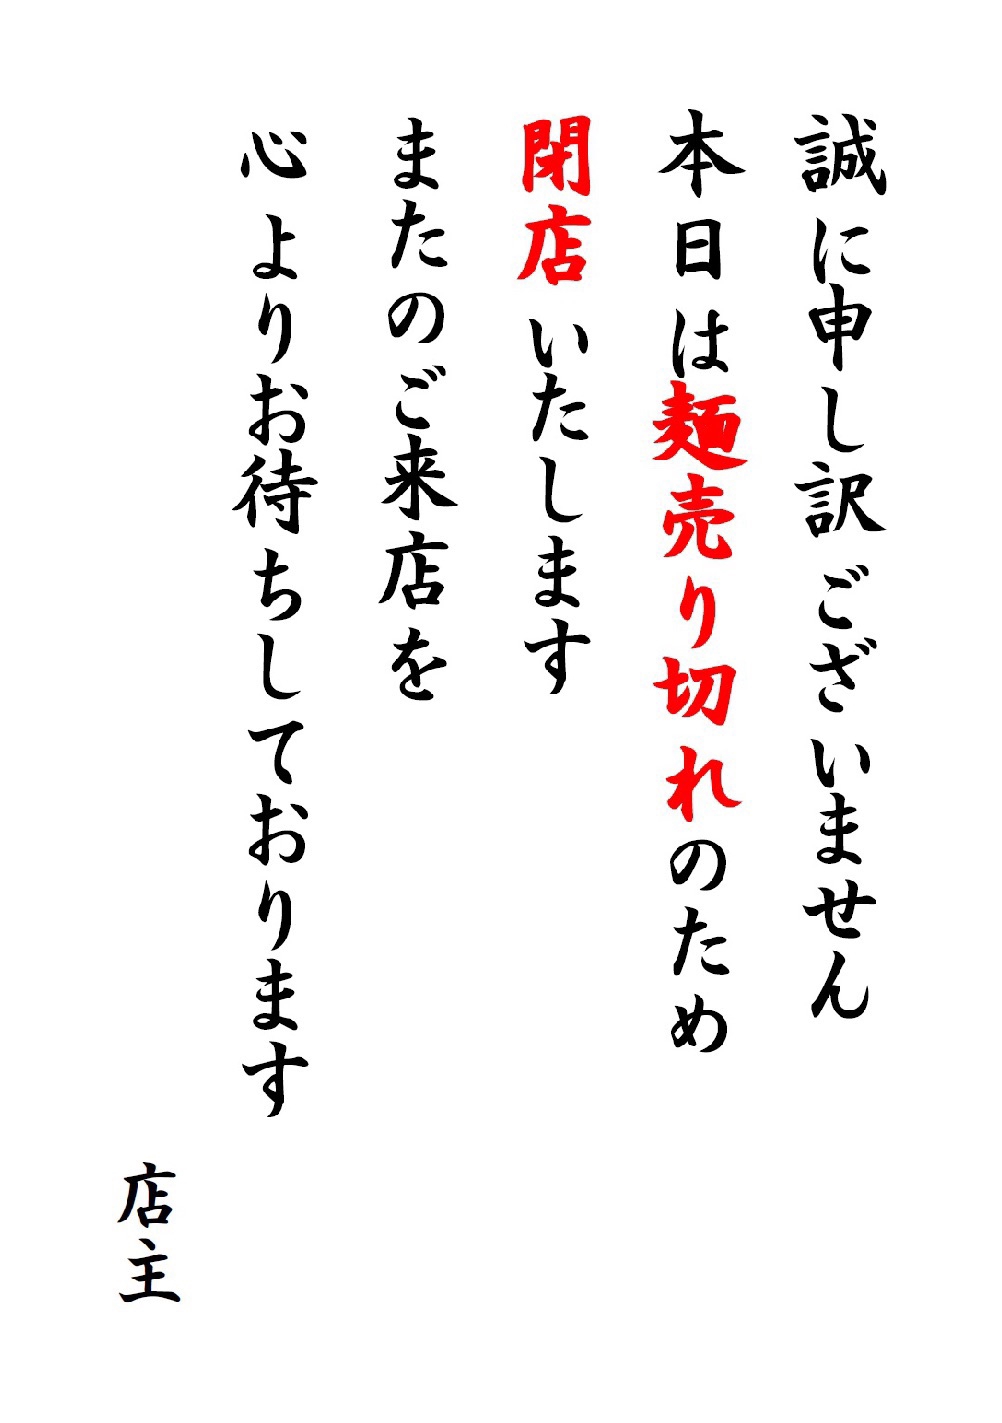 誠に申し訳ございません
本日は麺売り切れのため
閉店いたします
またのご来店を
心よりお待ちしております
店主